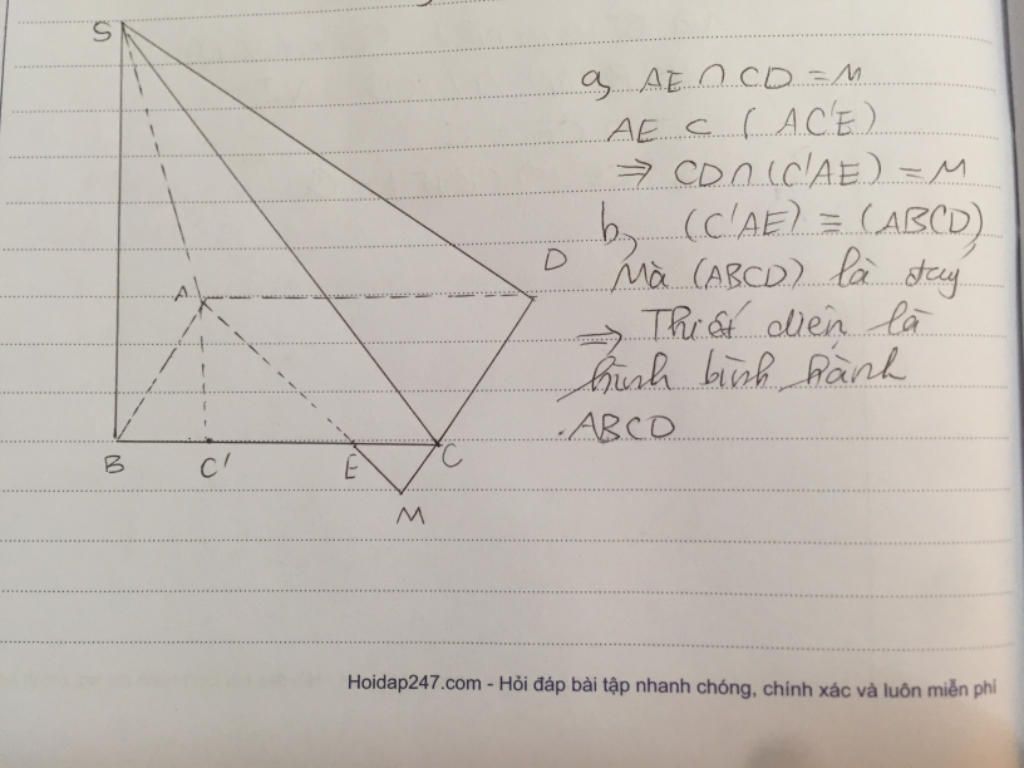 S
a, AE ∩ CD = M
AE ⊂ ( AC'E)
⇒ CD ∩ (C'AE) = M
b, (C'AE) ≡ (ABCD)
Mà (ABCD) là đáy
⇒ Thiết diện là
hình bình hành
.ABCD
D
A
B
C'
E
C
M
Hoidap247.com - Hỏi đáp bài tập nhanh chóng, chính xác và luôn miễn phí